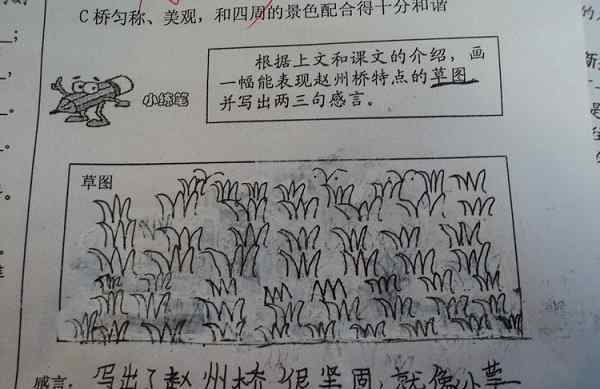 C 桥匀称、美观，和四周的景色配合得十分和谐
根据上文和课文的介绍，画
一幅能表现赵州桥特点的草图，
并写出两三句感言。
小练笔
草图
感言：写出了赵州桥很坚固，就像小草